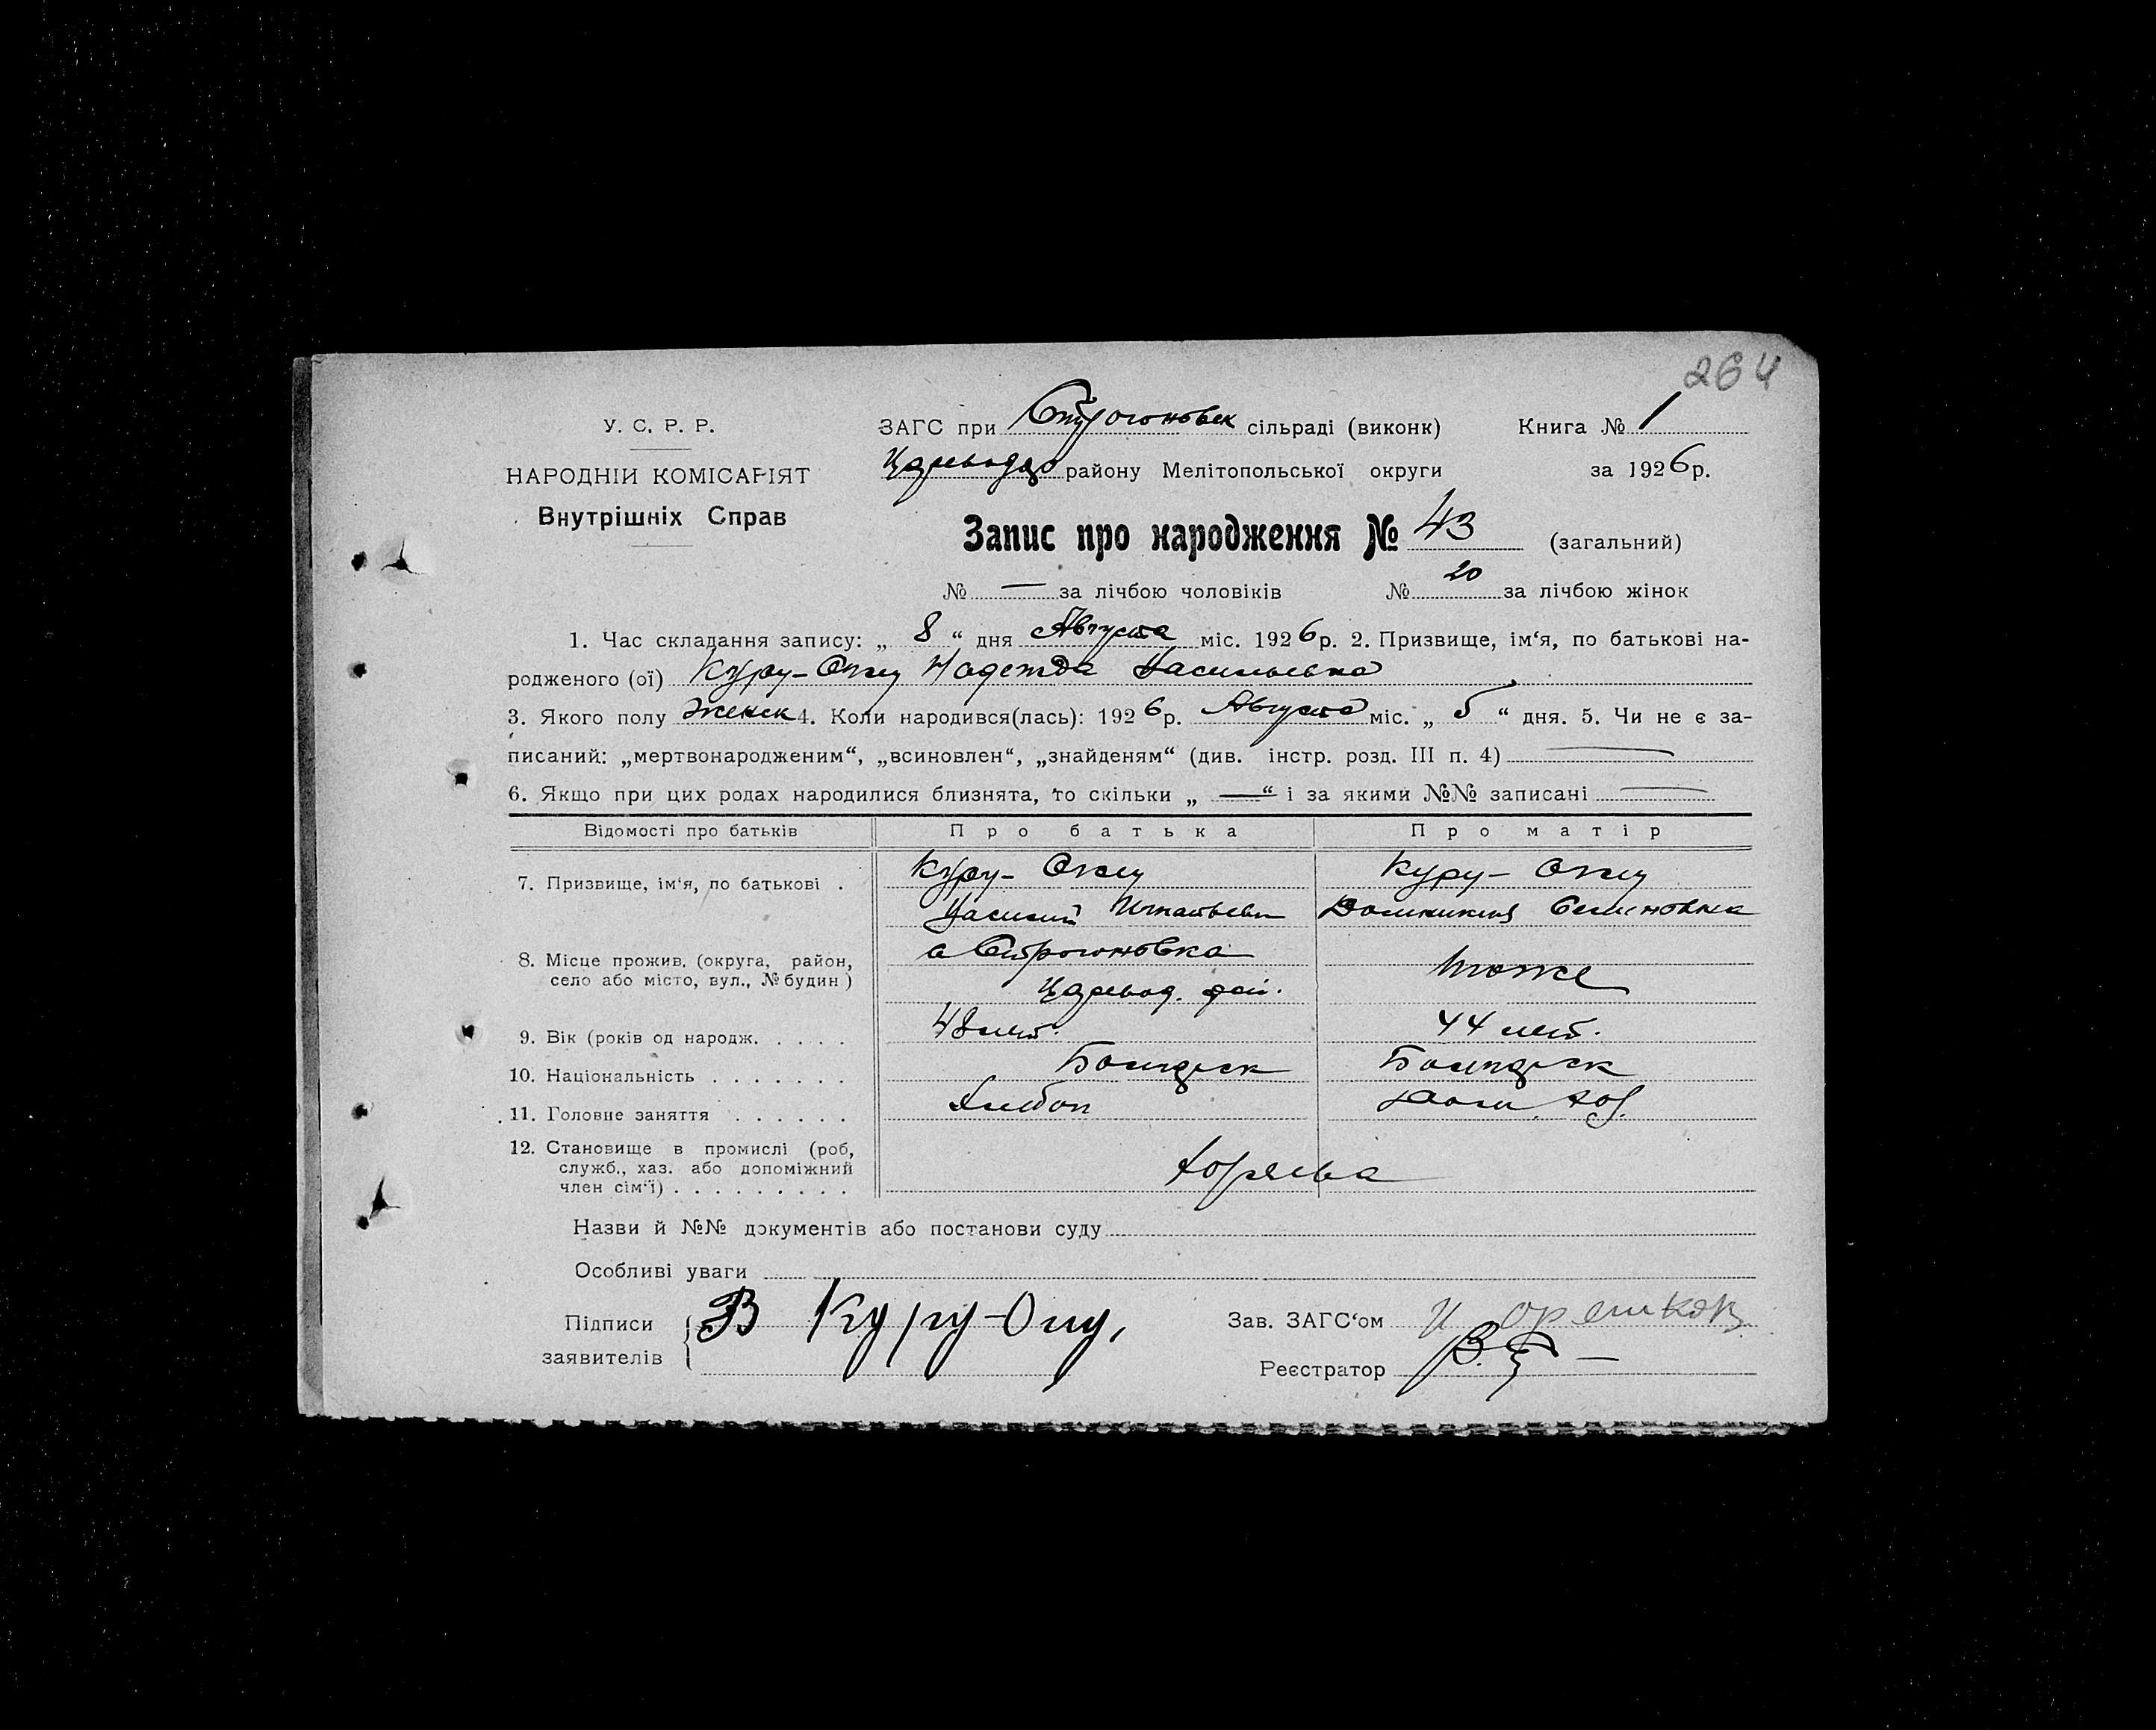 264
У. С. Р. Р.
НАРОДНІЙ КОМІСАРІЯТ
Внутрішніх Справ
ЗАГС при Строгоновск сільраді (виконк) Книга № 1
району Мелітопольської округи за 1926р.
Запис про народження № 43 (загальний)
№ — за лічбою чоловіків № 20 за лічбою жінок
1. Час складання запису: „ 8 “ дня Августа міс. 1926р. 2. Призвище, ім‘я, по батькові на-
родженого (ої) Куру-Очку Надежда Васильевна
3. Якого полу женск 4. Коли народився(лась): 1926р. Августа міс. „ 5 “ дня. 5. Чи не є за-
писаний: „мертвонародженим“, „всиновлен“, „знайденям“ (див. інстр. розд. III п. 4) —
6. Якщо при цих родах народилися близнята, то скільки „ — “ і за якими №№ записані —
Відомості про батьків Про батька Про матір
7. Призвище, ім‘я, по батькові . Куру- Куру-
Василий Игнатьевич Доминикия Семеновна
8. Місце прожив. (округа, район, село або місто, вул., № будин) с Строгоновка тоже
Царевод. рай.
9. Вік (років од народж. . . . . 48 лет. 44 лет.
10. Національність . . . . . . . Болгарск Болгарск
11. Головне заняття . . . . . . Хлебоп Дом. хоз.
12. Становище в промислі (роб, служб., хаз. або допоміжний член сім‘ї) . . . . . . . . .
Назви й №№ документів або постанови суду
Особливі уваги
Підписи заявителів В Куру-
Зав. ЗАГС‘ом
Реєстратор